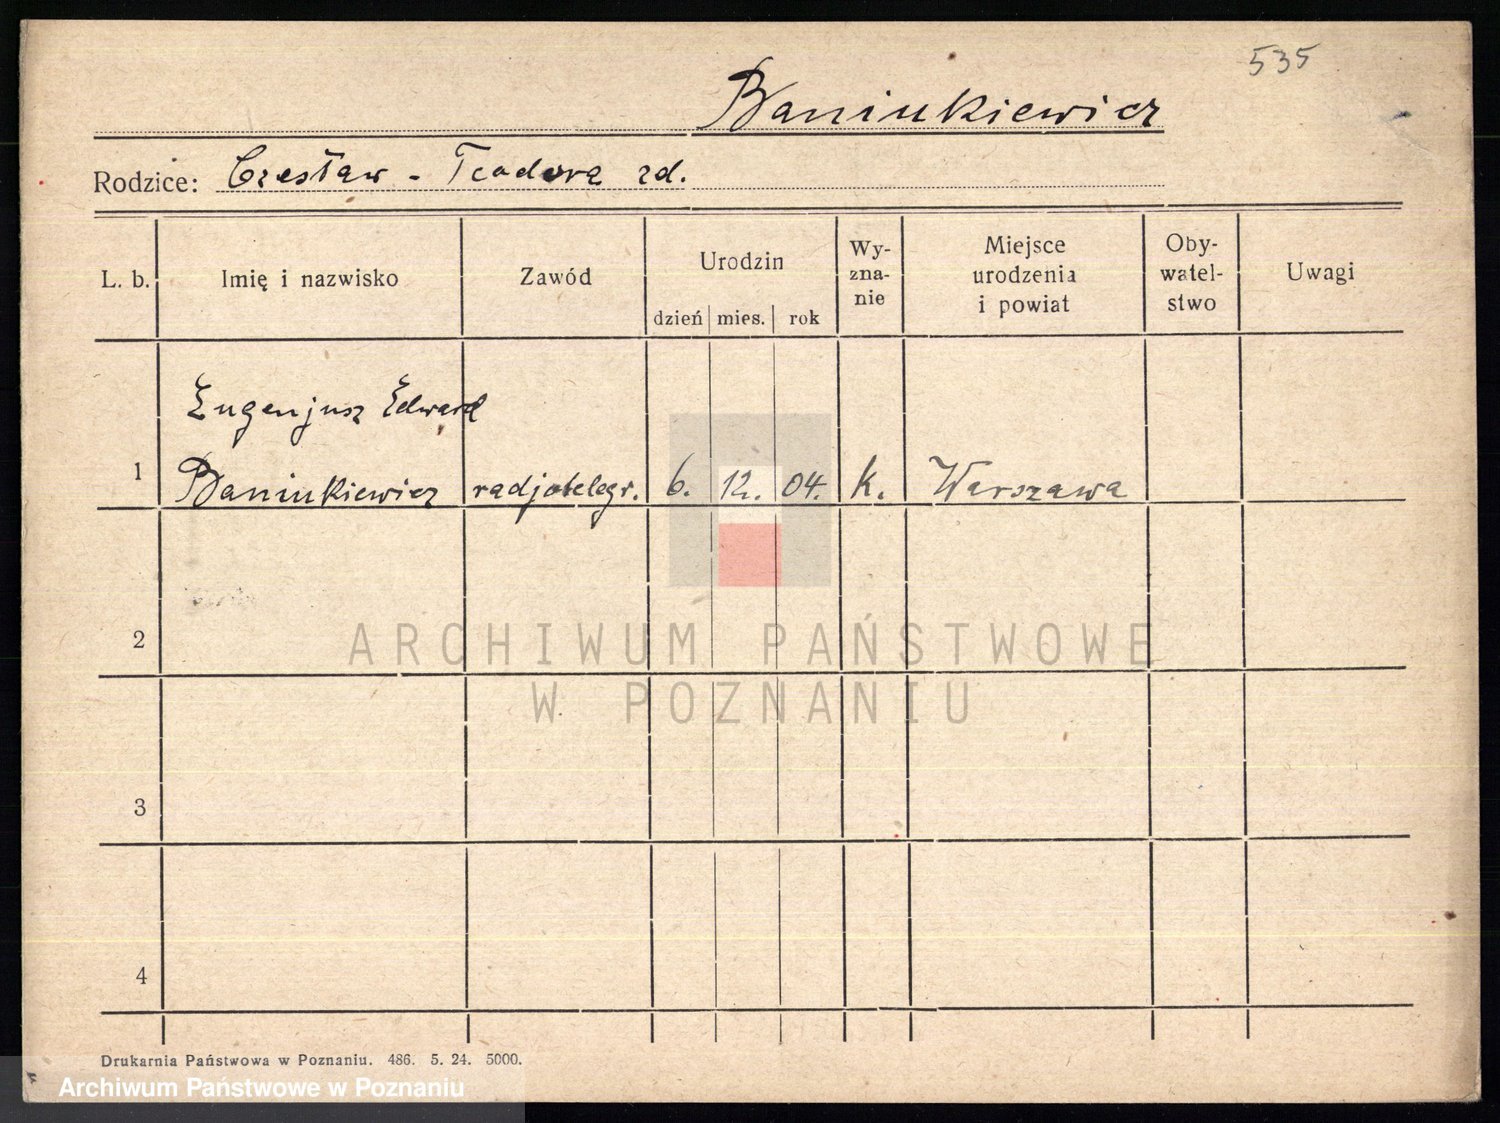 535
Baniukiewicz
Rodzice: Czesław - Teodora zd.
L. b. Imię i nazwisko Zawód Urodzin dzień mies. rok Wy-zna-nie Miejsce urodzenia i powiat Oby-watel-stwo Uwagi
Eugenjusz Edward
1 Baniukiewicz radjotelegr. 6. 12. 04. k. Warszawa
2
ARCHIWUM PAŃSTWOWE
W POZNANIU
3
4
Drukarnia Państwowa w Poznaniu. 486. 5. 24. 5000.
Archiwum Państwowe w Poznaniu